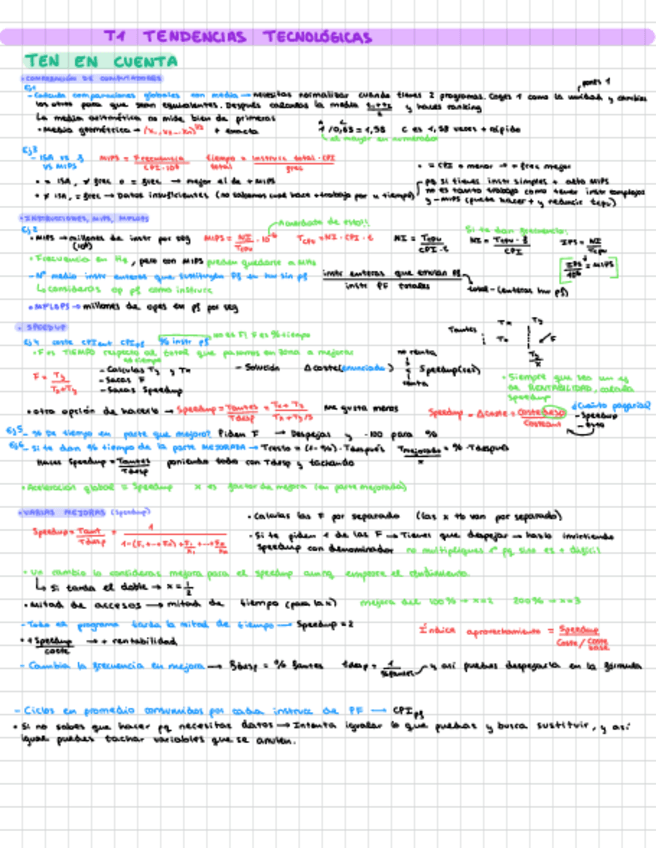 T1 TENDENCIAS TECNOLÓGICAS
TEN EN CUENTA
• COMPARACIÓN DE COMPUTADORES
Ej1
- Calcula comparaciones globales con media → necesitas normalizar cuando tienes 2 programas. Coges 1 como la unidad y cambias
los otros para que sean equivalentes. Después calculas la media y haces ranking
La media aritmética no mide bien de primeras
• Media geométrica → + exacta 1/0,63 = 1,58 C es 1,58 veces + rápido
Ej3
- ISA vs f vs MIPS MIPS = Frecuencia / CPI·10⁶ tiempo total = instrucc total·CPI / frec
• = CPI o menor → = frec mejor
• = ISA, ≠ frec o = frec → mejor el de + MIPS
• ≠ ISA, = frec → Datos insuficientes (no sabemos cual hace + trabajo por u tiempo)
pq si tienes instr simples + alto MIPS
no es tanto trabajo como tener instr complejas
y - MIPS (puede hacer + y reducir tcpu)
• INSTRUCCIONES, MIPS, MFLOPS
Ej2
Acuérdate de esto!!
• MIPS → millones de instr por seg
• Frecuencia en Hz, pero con MIPS puedes quedarte a MHz
- Nº medio instr enteras que sustituyen PF en hw sin pf
instr enteras que emulan PF / instr PF totales
total - (enteras hw pf)
↳ consideras op pf como instrucc
• MFLOPS → millones de opes en pf por seg
• SPEEDUP
Ej4 coste CPIent CPIpf % instr pf
no es F! F es % tiempo
• F es TIEMPO respecto al total que pasamos en zona a mejorar
- Calculas Ty y Tx
- Sacas F
- Sacas Speedup
- Solución Δcoste (enunciado) Speedup (sei)
no renta
renta
• Siempre que sea un ej
de RENTABILIDAD, calcula
Speedup
• otra opción de hacerlo → Speedup = Tantes / Tdesp me gusta menos
¿Cuánto pagarías?
- Speedup
Ej5 - % De tiempo en parte que mejora? Piden F → Despejas y ·100 para %
Ej6 - Si te dan % tiempo de la parte MEJORADA → Tresto = (1-%)·Tdespués Tmejorado / x = %·Tdespués
Haces Speedup = Tantes / Tdesp poniendo todo con Tdesp y tachando
• Aceleración global = Speedup x es factor de mejora (en parte mejorada)
• VARIAS MEJORAS (Speedup)
• Calculas las F por separado (las x tb van por separado)
• Si te piden 1 de las F → Tienes que despejar → hazlo invirtiendo
Speedup con denominador no multipliques 1º pq sino es + difícil
• Un cambio lo consideras mejora para el speedup aunq empeore el rendimiento.
↳ Si tarda el doble → x = 1/2
• Mitad de accesos → mitad de tiempo (para la x) mejora del 100% → x=2 200% → x=3
- Todo el programa tarda la mitad de tiempo → Speedup = 2
• + Speedup / coste → + rentabilidad
Índice aprovechamiento = Speedup / Coste/coste base
- Cambia la frecuencia en mejora → fdesp = % fantes tdesp = y así puedes despejarla en la fórmula
- Ciclos en promedio consumidos por cada instrucc de PF → CPIpf
• Si no sabes que hacer pq necesitas datos → Intenta igualar lo que puedas y busca sustituir, y así
igual puedes tachar variables que se anulen.